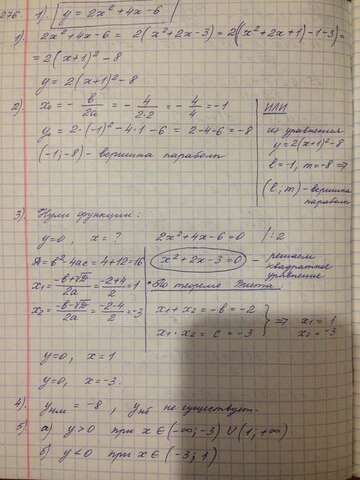 276 1) y = 2x² + 4x - 6
1). 2x² + 4x - 6 = 2(x² + 2x - 3) = 2((x² + 2x + 1) - 1 - 3) =
= 2(x+1)² - 8
y = 2(x+1)² - 8
2). x₀ = - b/2a = - 4/2·2 = - 4/4 = -1
y₀ = 2·(-1)² - 4·1 - 6 = 2 - 4 - 6 = -8
(-1; -8) - вершина параболы
ИЛИ
из уравнения
y = 2(x+1)² - 8
l = -1, m = -8 ⇒
(l; m) - вершина
параболы
3). Нули функции:
y = 0, x = ? 2x² + 4x - 6 = 0 /:2
D = b² - 4ac = 4 + 12 = 16
x² + 2x - 3 = 0 - решаем
квадратное
уравнение
x₁ = -b+√D/2a = -2+4/2 = 1
x₂ = -b-√D/2a = -2-4/2 = -3
• По теореме Виета:
x₁ + x₂ = -b = -2
x₁ · x₂ = c = -3
} ⇒ x₁ = 1
x₂ = -3
y = 0, x = 1
y = 0, x = -3.
4). yнм = -8, yнб не существует.
5) а) y > 0 при x ∈ (-∞; -3) ∪ (1; +∞)
б) y < 0 при x ∈ (-3; 1)